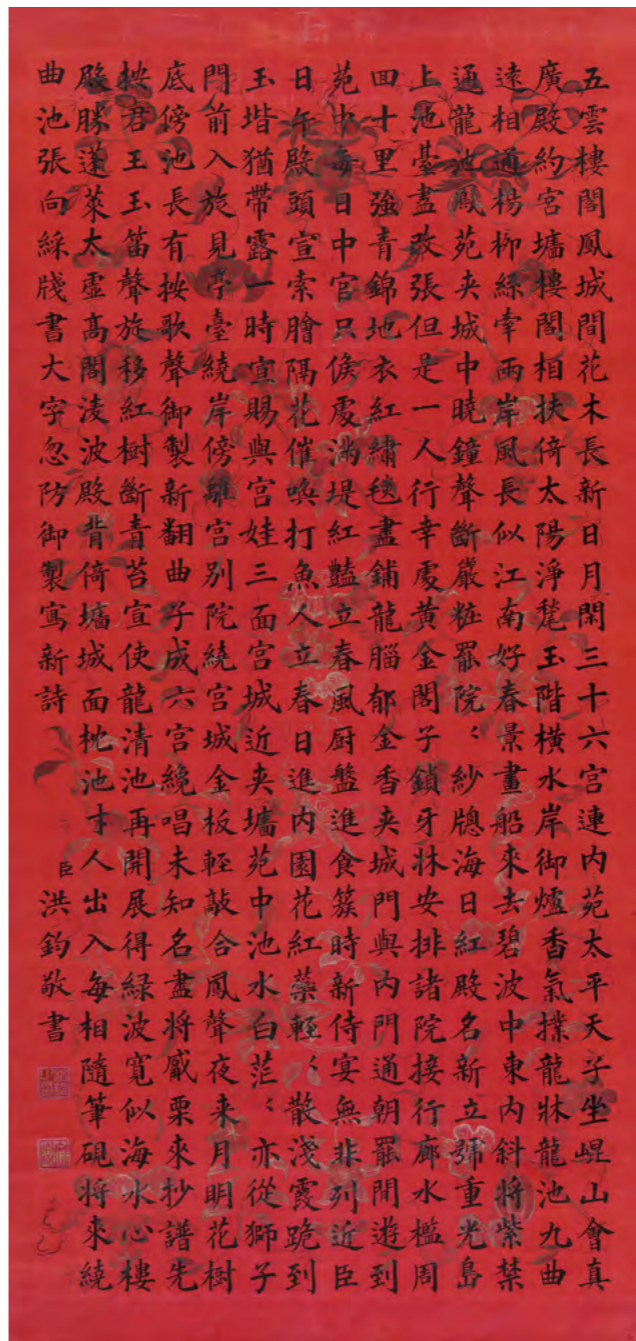 五雲樓閣鳳城間花木長新日月閑三十六宮連內苑太平天子坐崐山會真
廣殿約宮墻樓閣相扶倚太陽淨甃玉階橫水岸御爐香氣撲龍牀龍池九曲
遠相通楊柳絲牽兩岸風長似江南好春景畫船來去碧波中東內斜將紫禁
通龍池鳳苑夾城中曉鐘聲斷嚴粧罷院〻紗牕海日紅殿名新立號重光島
上池臺盡改張但是一人行幸處黃金閣子鎖牙牀安排諸院接行廊水檻周
回十里強青錦地衣紅繡毯盡鋪龍腦郁金香夾城門與內門通朝罷閒遊到
苑中每日中官只候處滿堤紅豔立春風厨盤進食簇時新侍宴無非列近臣
日午殿頭宣索膾隔花催喚打魚人立春日進內園花紅蘂輕〻散淺霞跪到
玉堦猶帶露一時宣賜與宮娃三面宮城近夾墻苑中池水白茫〻亦從獅子
門前入旋見亭臺繞岸傍離宮別院繞宮城金板輕敲合鳳聲夜来月明花樹
底傍池長有按歌聲御製新翻曲子成六宮纔唱未知名盡將觱栗來抄譜先
按君王玉笛聲旋移紅樹斷青苔宣使龍清池再開展得緑波寬似海水心樓
殿勝蓬萊太虛高閣淩波殿背倚墻城面枕池才人出入每相隨筆硯將來繞
曲池張向綵牋書大字忽防御製寫新詩
臣洪鈞敬書